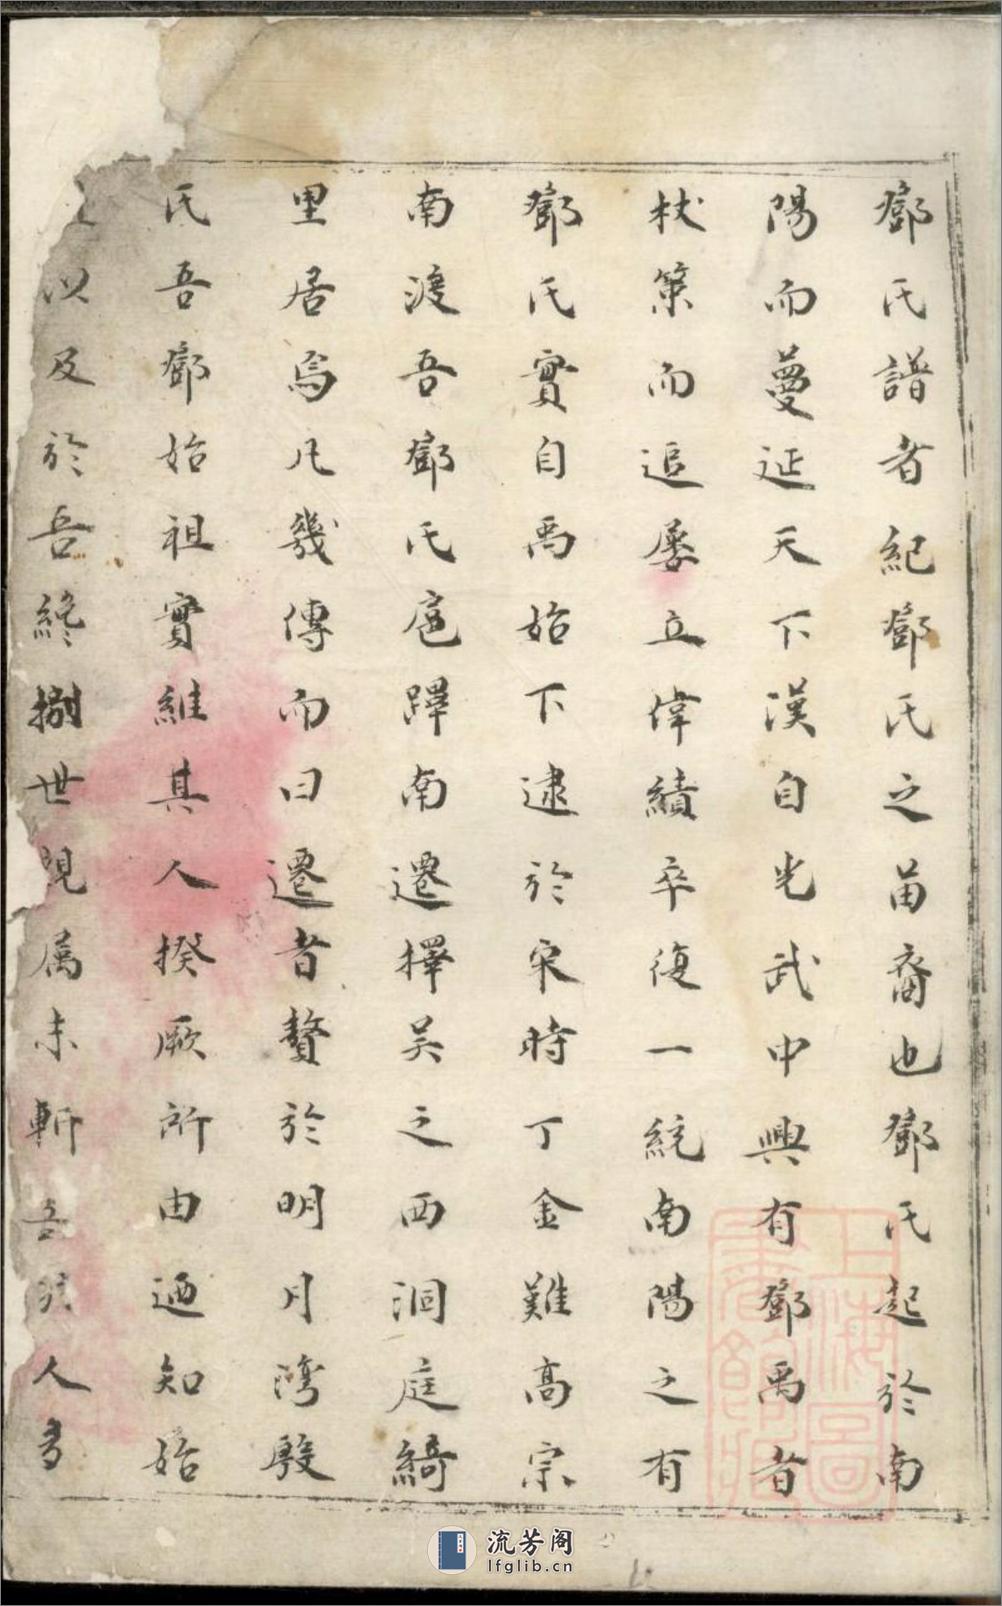 鄧氏譜者紀鄧氏之苗裔也鄧氏起於南
陽而蔓延天下漢自光武中興有鄧禹者
杖策而追屢立偉績卒復一統南陽之有
鄧氏實自禹始下逮於宋時丁金難高宗
南渡吾鄧氏扈蹕南遷擇吴之西洞庭綺
里居焉凡幾傳而曰遷者贅於明月灣殷
氏吾鄧始祖實維其人揆厥所由迺知始
以及於吾終捌世現属未斬人
上海圖書館藏
流芳阁
lfglib.cn